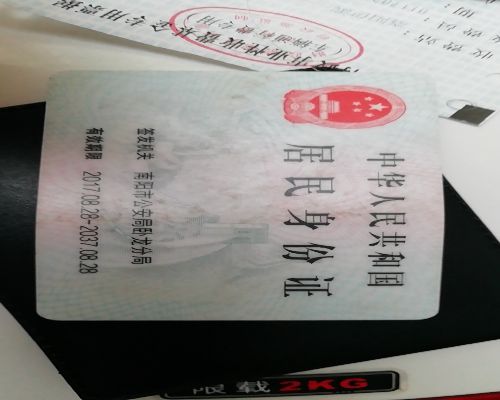 中华人民共和国
居民身份证
签发机关 南阳市公安局卧龙分局
有效期限 2017.08.28-2037.08.28
限载2KG